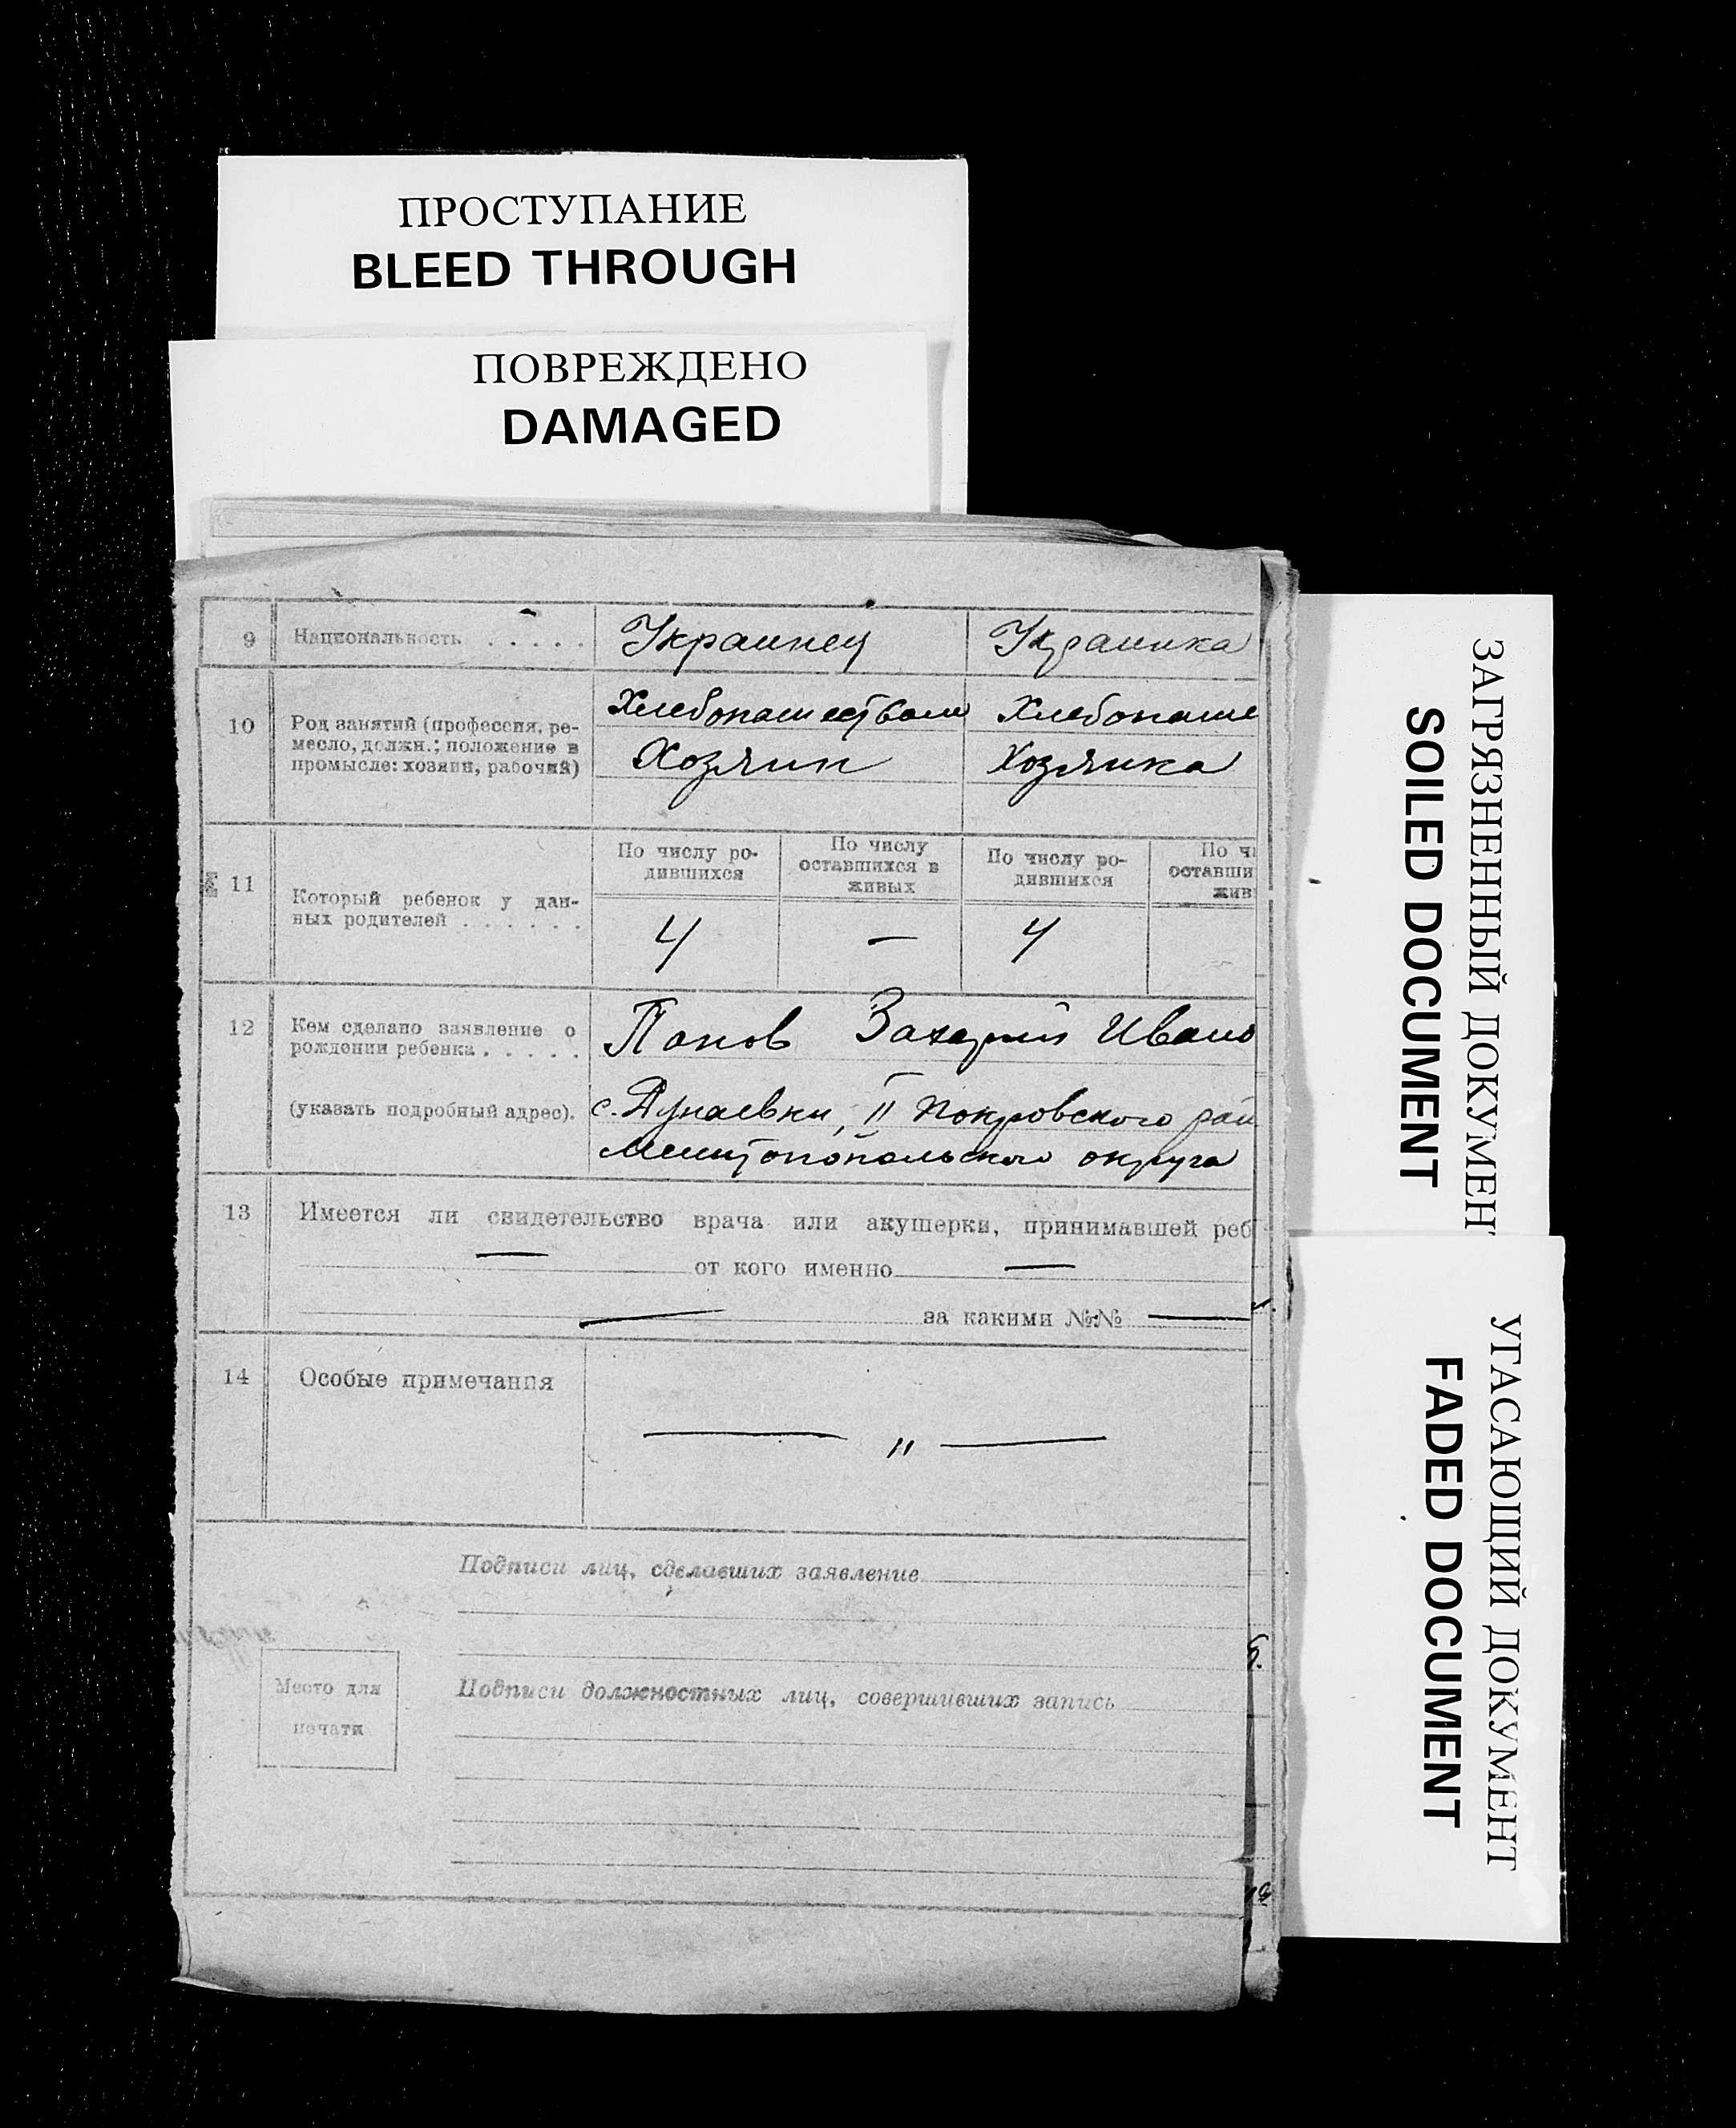 ПРОСТУПАНИЕ
BLEED THROUGH
ПОВРЕЖДЕНО
DAMAGED
9 Национальность . . . . . Украинец Украинка
10 Род занятий (профессия, ре-
месло, должн.; положение в
промысле: хозяин, рабочий)
Хлебопашеством Хлебопаше
Хозяин Хозяйка
11 Который ребенок у дан-
ных родителей . . . . . .
По числу ро-
дившихся
По числу
оставшихся в
живых
По числу ро-
дившихся
По чи
оставши
жив
4 — 4
12 Кем сделано заявление о
рождении ребенка . . . . .
(указать подробный адрес).
Попов Захарий Ивано
с. Дунаевки, II Покровского рай
Мелитопопольского округа
13 Имеется ли свидетельство врача или акушерки, принимавшей реб
— от кого именно —
— за какими №№ —
14 Особые примечания
— „ —
Подписи лиц, сделавших заявление
Место для
печати
Подписи должностных лиц, совершивших запись
ЗАГРЯЗНЕННЫЙ ДОКУМЕНТ
SOILED DOCUMENT
УГАСАЮЩИЙ ДОКУМЕНТ
FADED DOCUMENT